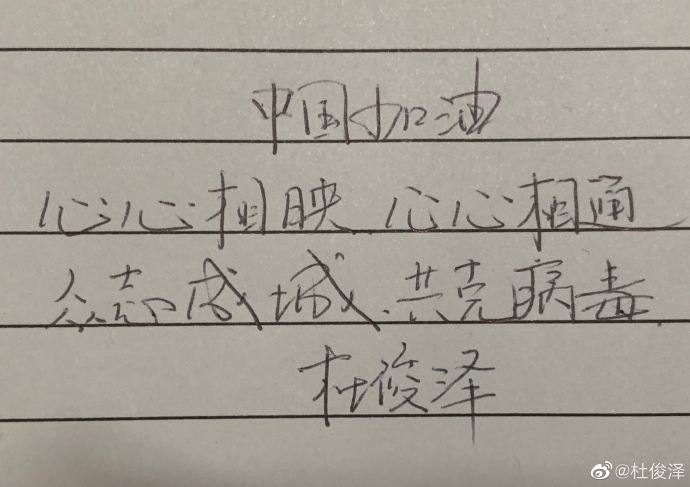 中国加油
心心相映 心心相通
众志成城.共克病毒
杜俊泽
@杜俊泽